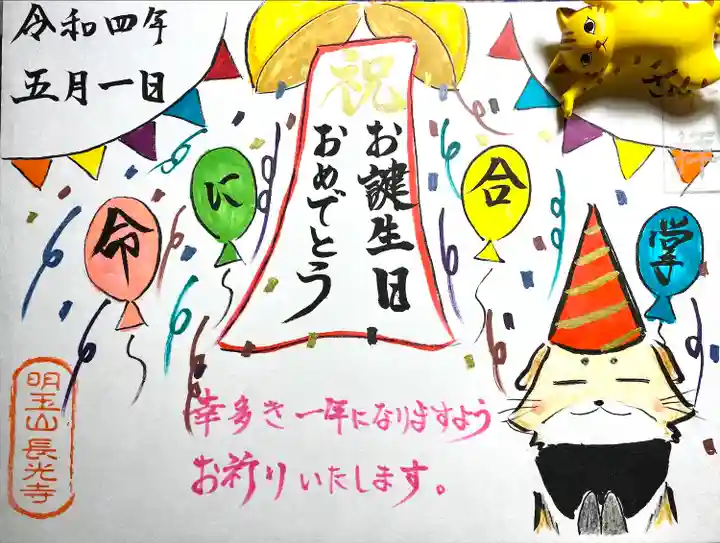 令和四年
五月一日
祝
お誕生日
おめでとう
命
に
合
掌
幸多き一年になりますよう
お祈りいたします。
明王山長光寺